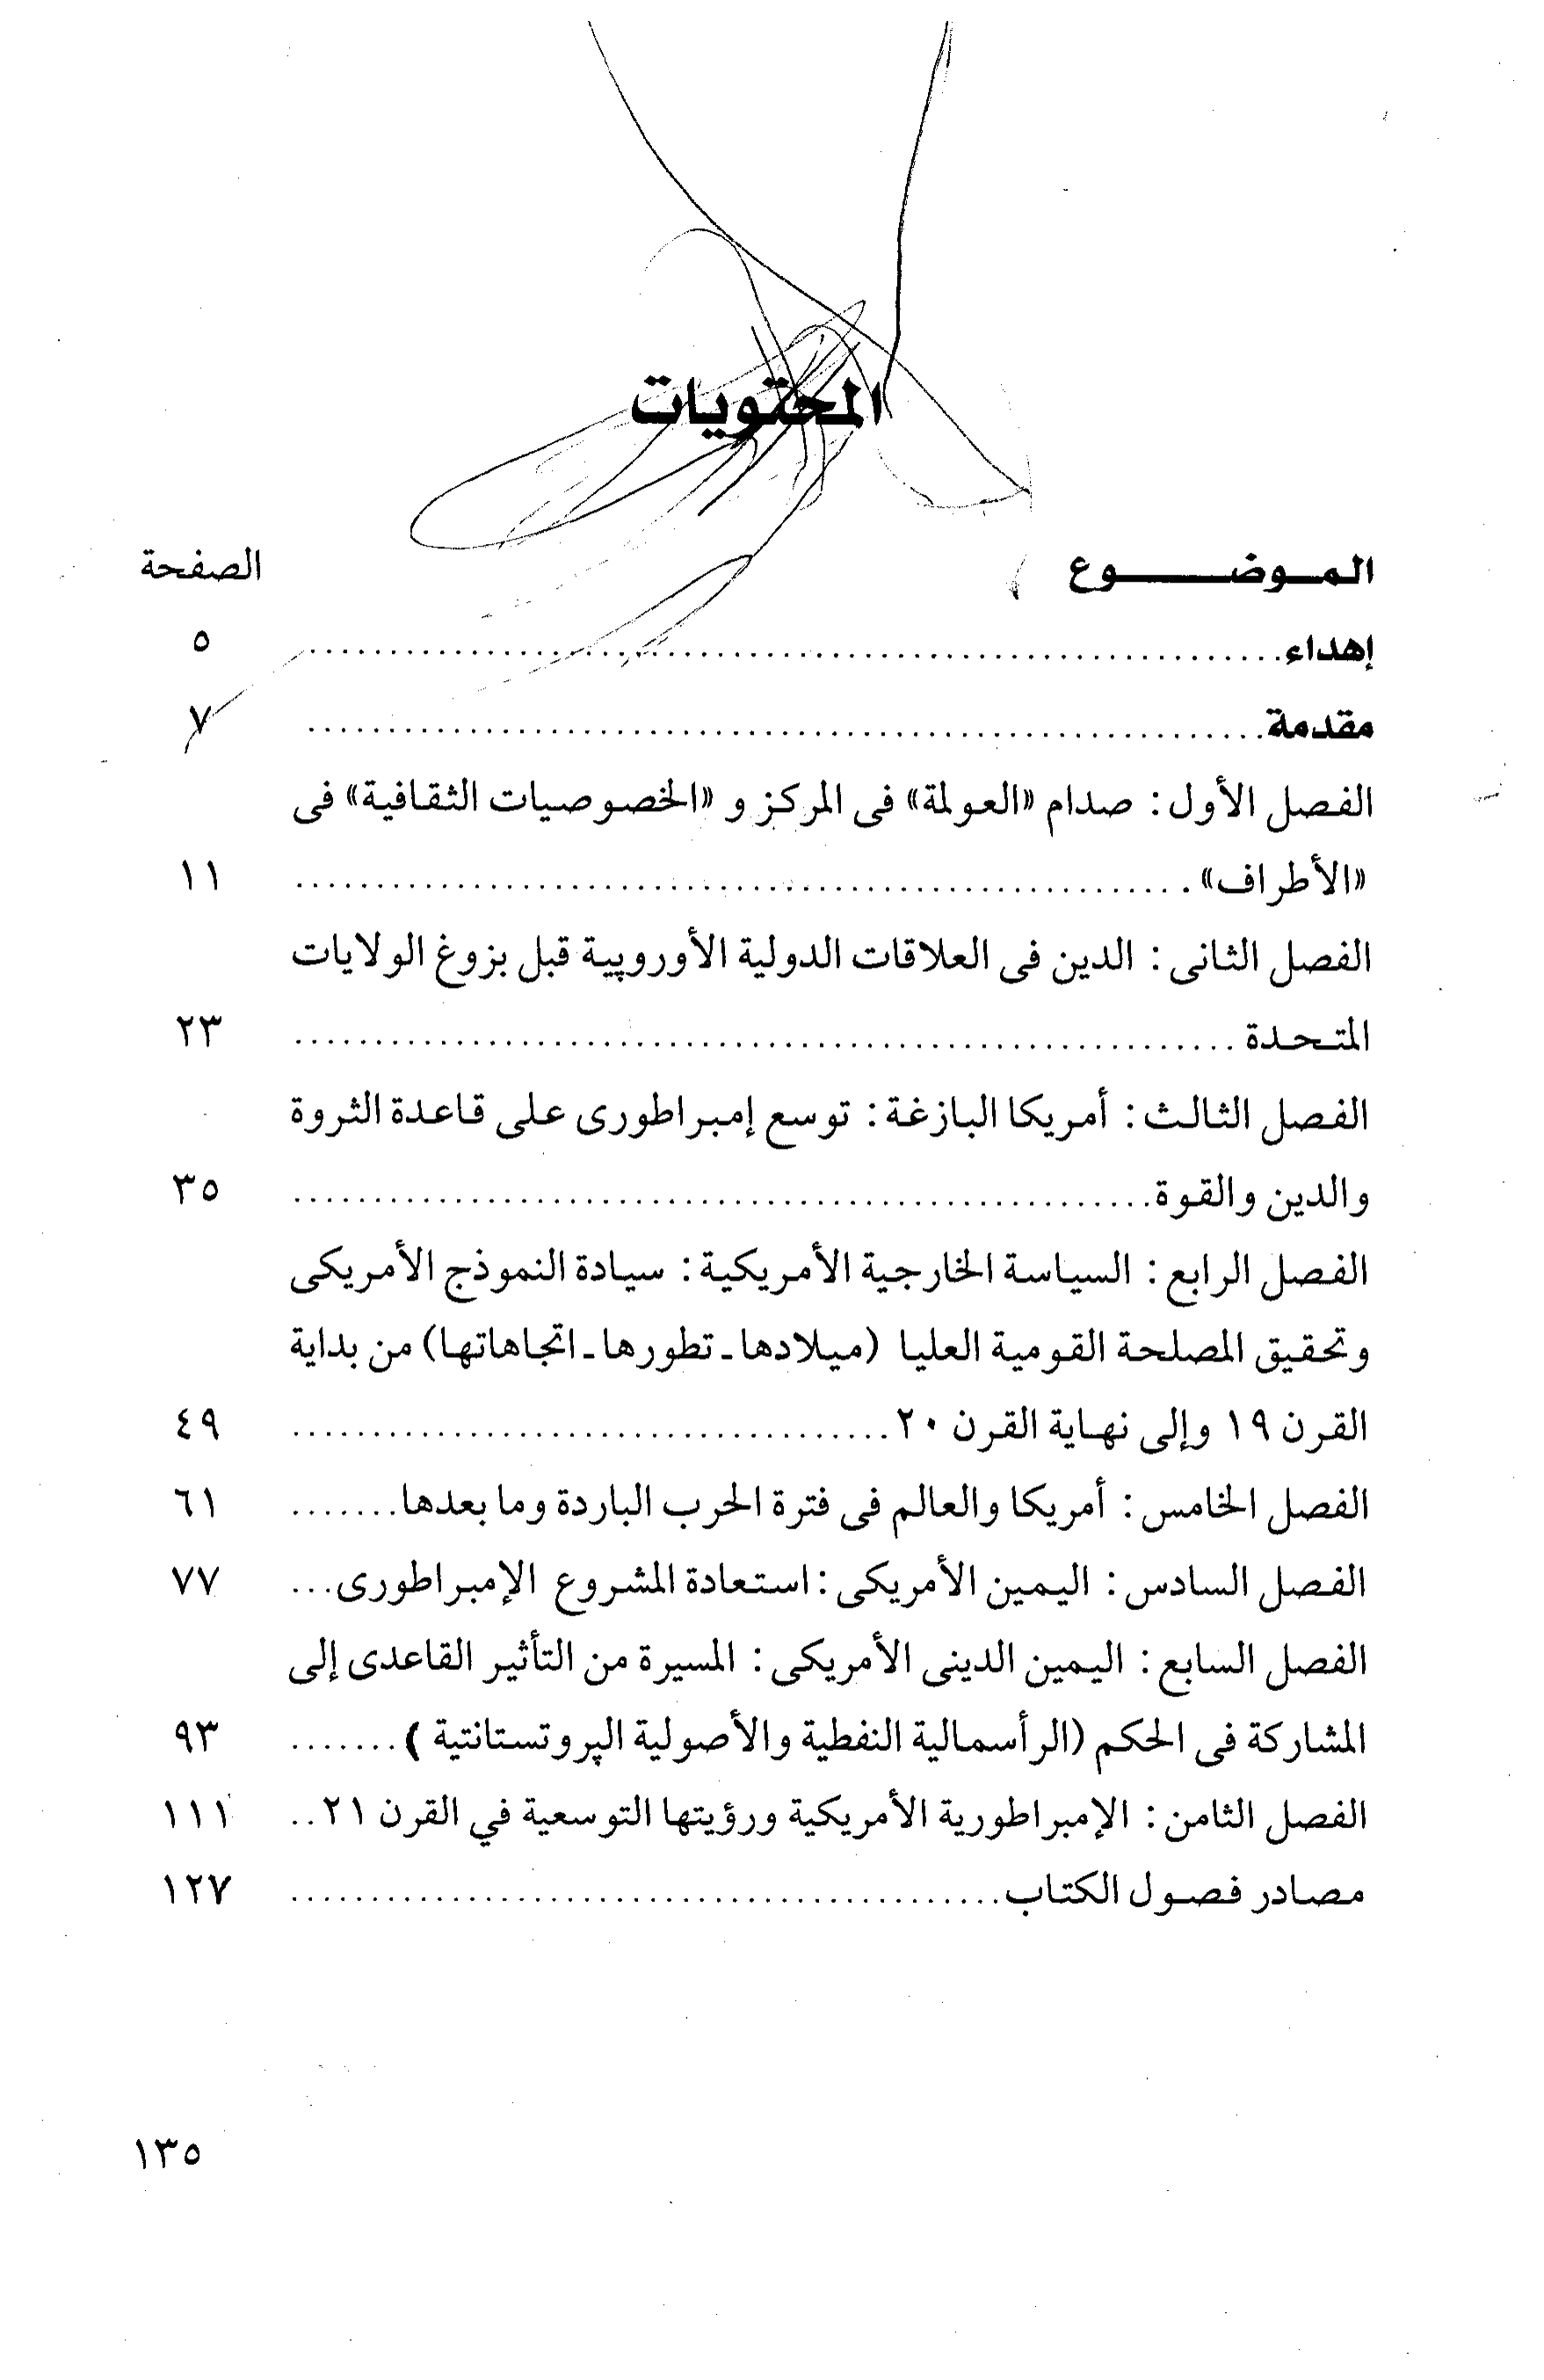 المحتويات
الموضوع الصفحة
إهداء................................................................ ٥
مقدمة................................................................ ٧
الفصل الأول: صدام «العولمة» فى المركز و «الخصوصيات الثقافية» فى
«الأطراف»................................................................ ١١
الفصل الثانى: الدين فى العلاقات الدولية الأوروپية قبل بزوغ الولايات
المتحدة................................................................ ٢٣
الفصل الثالث: أمريكا البازغة: توسع إمبراطورى على قاعدة الثروة
والدين والقوة................................................................ ٣٥
الفصل الرابع: السياسة الخارجية الأمريكية: سيادة النموذج الأمريكى
وتحقيق المصلحة القومية العليا (ميلادها ـ تطورها ـ اتجاهاتها) من بداية
القرن ١٩ وإلى نهاية القرن ٢٠...................................... ٤٩
الفصل الخامس: أمريكا والعالم فى فترة الحرب الباردة وما بعدها....... ٦١
الفصل السادس: اليمين الأمريكى: استعادة المشروع الإمبراطورى... ٧٧
الفصل السابع: اليمين الدينى الأمريكى: المسيرة من التأثير القاعدى إلى
المشاركة فى الحكم (الرأسمالية النفطية والأصولية الپروتستانتية )....... ٩٣
الفصل الثامن: الإمبراطورية الأمريكية ورؤيتها التوسعية في القرن ٢١.. ١١١
مصادر فصول الكتاب............................................. ١٢٧
١٣٥